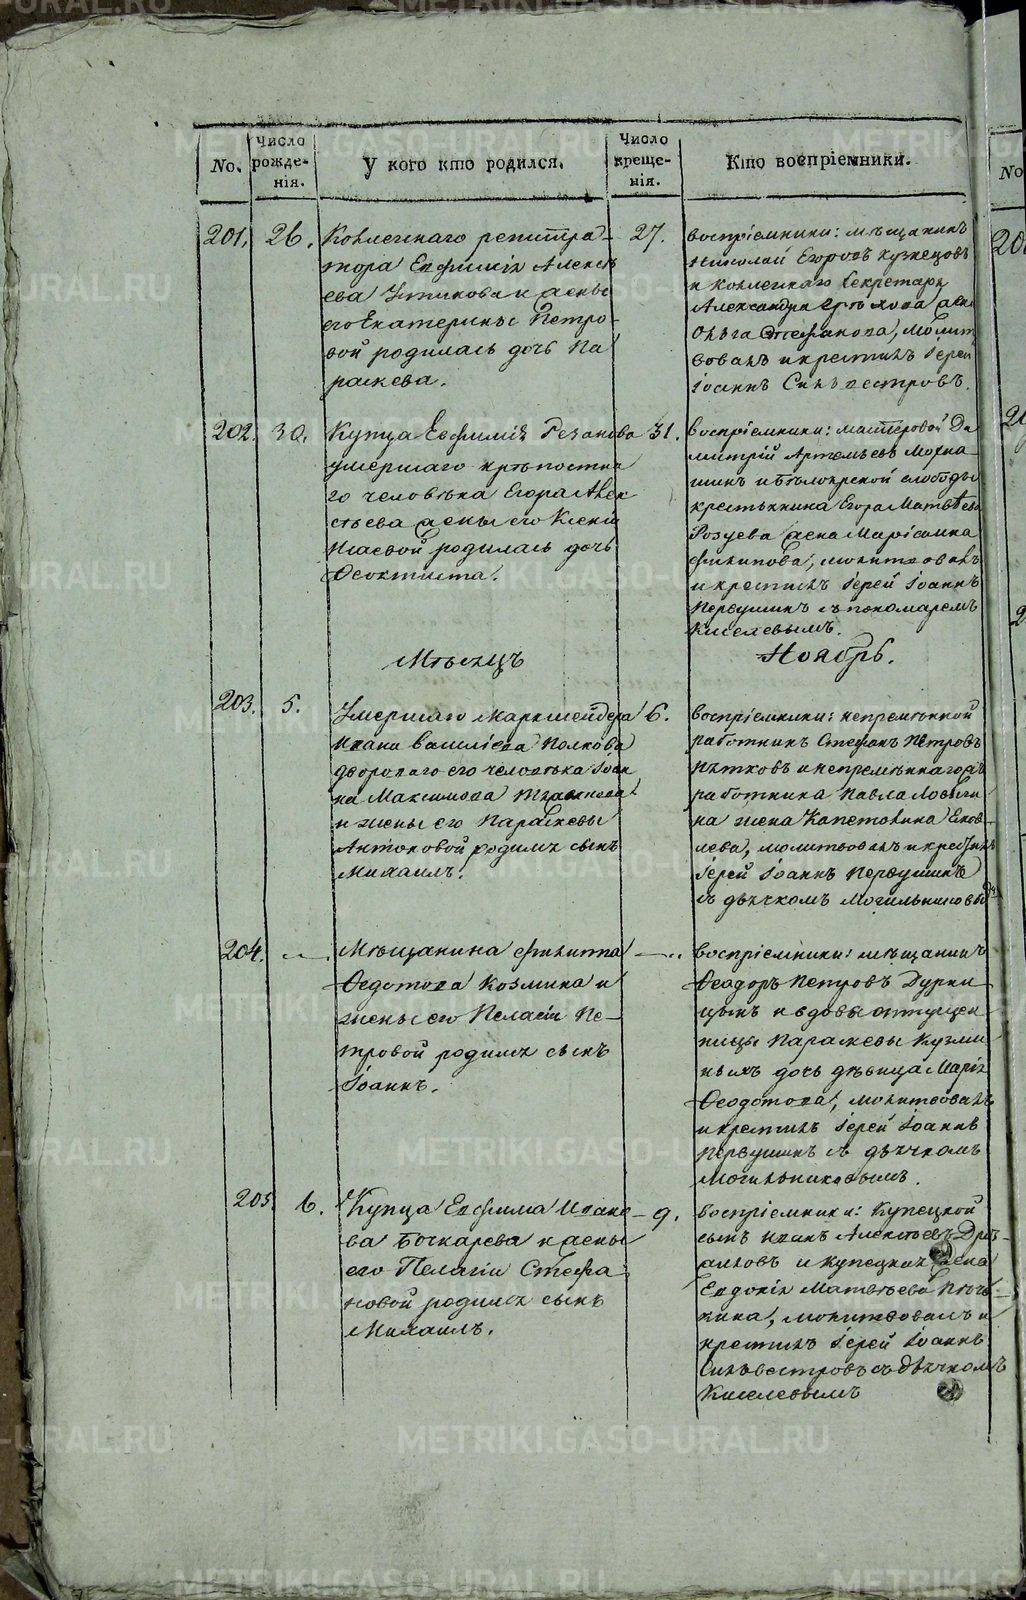 No.
Число рожде- нія.
У кого кто родился.
Число креще- нія.
Кто воспріемники.
201.
26.
Коллежнаго регистра-
тора Евфимія Алексѣ
ева Устинова и жены
его Екатерины Петро-
вой родилась дочь Па
раскева.
27.
воспріемники: мѣщанинъ
Николай Егоровъ Кузнецовъ
и коллежнаго секретаря
Александра жена
Ольга Стефанова, молит
вовалъ и крестилъ Іерей
Іоаннъ Сильвестровъ.
202.
30.
Купца Евфимія Рязанова
умершаго крѣпостна
го человѣка Егора Алек
сѣева жены его Ксеніи
Исаевой родилась дочь
Феоктиста.
31.
воспріемники: мастеровой Ди
митрій Артемьевъ
и Бѣлоярской слободы
крестьянина Егора Матвѣева
жена Маріамна
Филипова, молитвовалъ
и крестилъ Іерей Іоаннъ
Первушинъ съ пономаремъ
Киселевымъ.
Мѣсяцъ
Ноябрь.
203.
5.
Умершаго Маркшейдера
Ивана Василіева Полкова
двороваго его человѣка Іоан
на Максимова
и жены его Параскевы
Антоновой родился сынъ
Михаилъ.
6.
воспріемники: непремѣнной
работникъ Стефанъ Петровъ
Пятковъ и непремѣннаго
работника Павла
на жена Капетолина Яков-
лева, молитвовалъ и крестилъ
Іерей Іоаннъ Первушинъ
съ дьячкомъ Могильниковы
204.
Мѣщанина Филипа
Федотова Козмина и
жены его Пелагіи Пе-
тровой родился сынъ
Іоаннъ.
воспріемники: мѣщанинъ
Феодоръ Петровъ Дурни
цынъ и вдовы
Параскевы Кузми
ныхъ дочь дѣвица Марія
Феодотова, молитвовалъ
и крестилъ Іерей Іоаннъ
Первушинъ съ дьячкомъ
Могильниковымъ.
205.
6.
Купца Евфима Ивано-
ва Бочкарева и жены
его Пелагіи Стефа-
новой родился сынъ
Михаилъ.
9.
воспріемники: Купецкой
сынъ Иванъ Алексѣевъ
и купецкая жена
Евдокія Матвѣева
молитвовалъ и
крестилъ Іерей Іоаннъ
Сильвестровъ съ дьячкомъ
Киселевымъ
No
METRIKI.GASO-URAL.RU